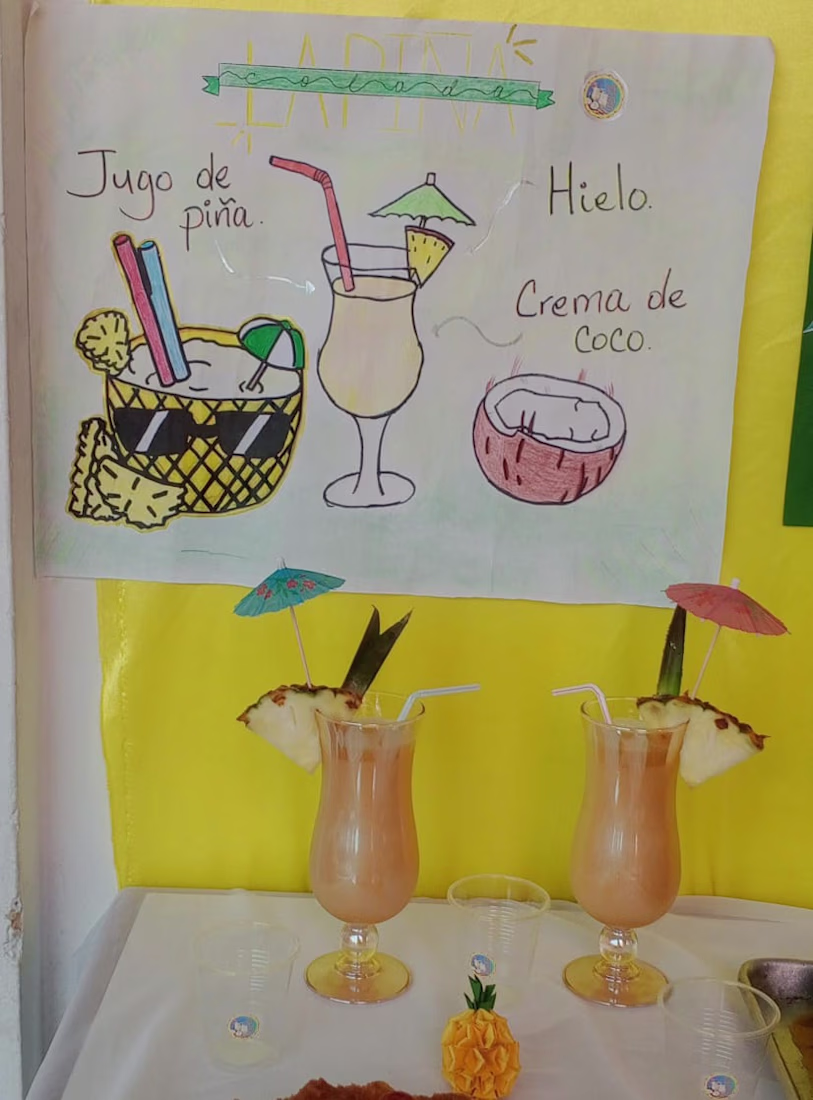 LA PIÑA
colada
Jugo de
piña.
Hielo.
Crema de
coco.